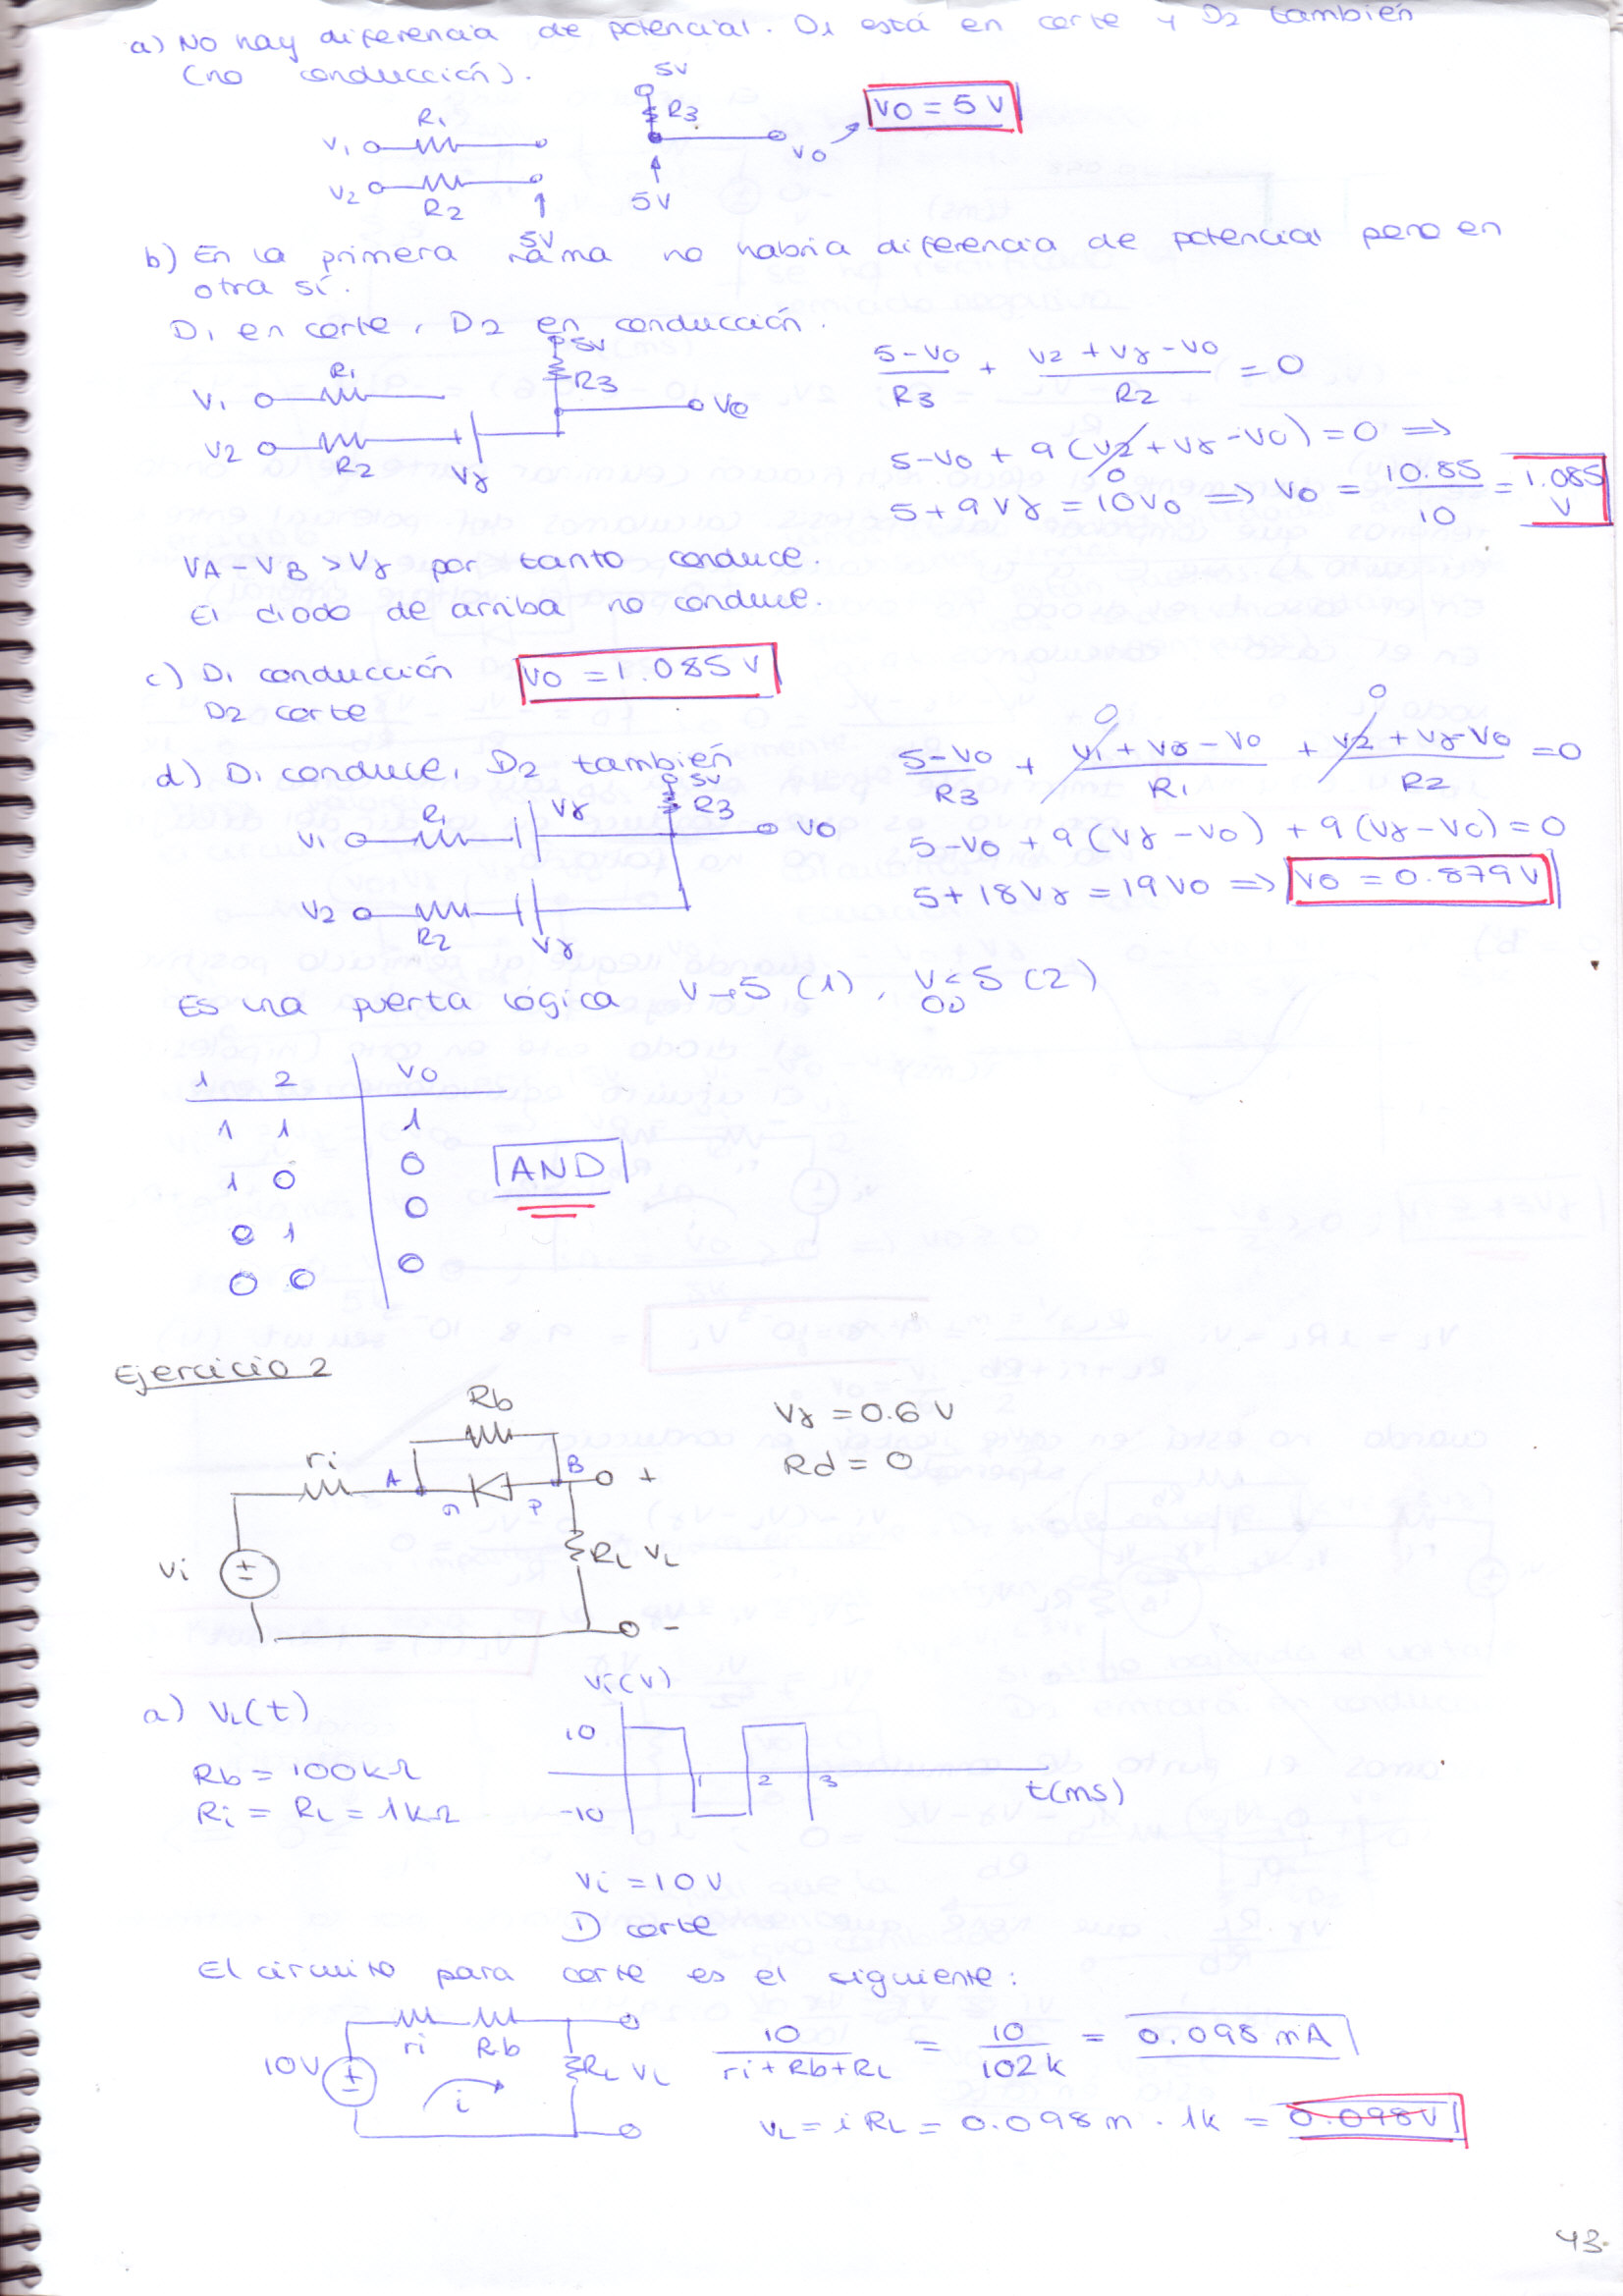 a) No hay diferencia de potencial. D1 está en corte y D2 también
(no conducción).
5V
R3
R1
V1
V2
R2
5V
5V
Vo
Vo = 5 V
b) En la primera rama no habría diferencia de potencial pero en
otra sí.
D1 en corte, D2 en conducción.
5V
R3
R1
V1
V2
R2
Vγ
Vo
5-Vo/R3 + V2 + Vγ - Vo/R2 = 0
5-Vo + 9(V2 + Vγ - Vo) = 0 ⇒
0
5 + 9Vγ = 10Vo ⇒ Vo = 10.85/10 = 1.085 V
VA - VB > Vγ por tanto conduce.
El diodo de arriba no conduce.
c) D1 conducción
D2 corte
Vo = 1.085 V
d) D1 conduce, D2 también
5V
R3
V1
R1
Vγ
Vo
V2
R2
Vγ
0
0
5-Vo/R3 + V1 + Vγ - Vo/R1 + V2 + Vγ - Vo/R2 = 0
5-Vo + 9(Vγ - Vo) + 9(Vγ - Vo) = 0
5 + 18Vγ = 19Vo ⇒ Vo = 0.879 V
Es una puerta lógica V→5 (1), V<5 (2)
1 2 Vo
1 1 1
1 0 0
0 1 0
0 0 0
AND
Ejercicio 2
Rb
ri
A
n
P
B
+
Vi
RL VL
-
Vγ = 0.6 V
Rd = 0
a) VL(t)
Rb = 100kΩ
Ri = RL = 1kΩ
Vi(V)
10
-10
1 2 3
t(ms)
Vi = 10V
D corte
El circuito para corte es el siguiente:
10V
ri
Rb
i
RL VL
10/ri+Rb+RL = 10/102k = 0.098 mA
VL = i RL = 0.098 m · 1k = 0.098V
43.